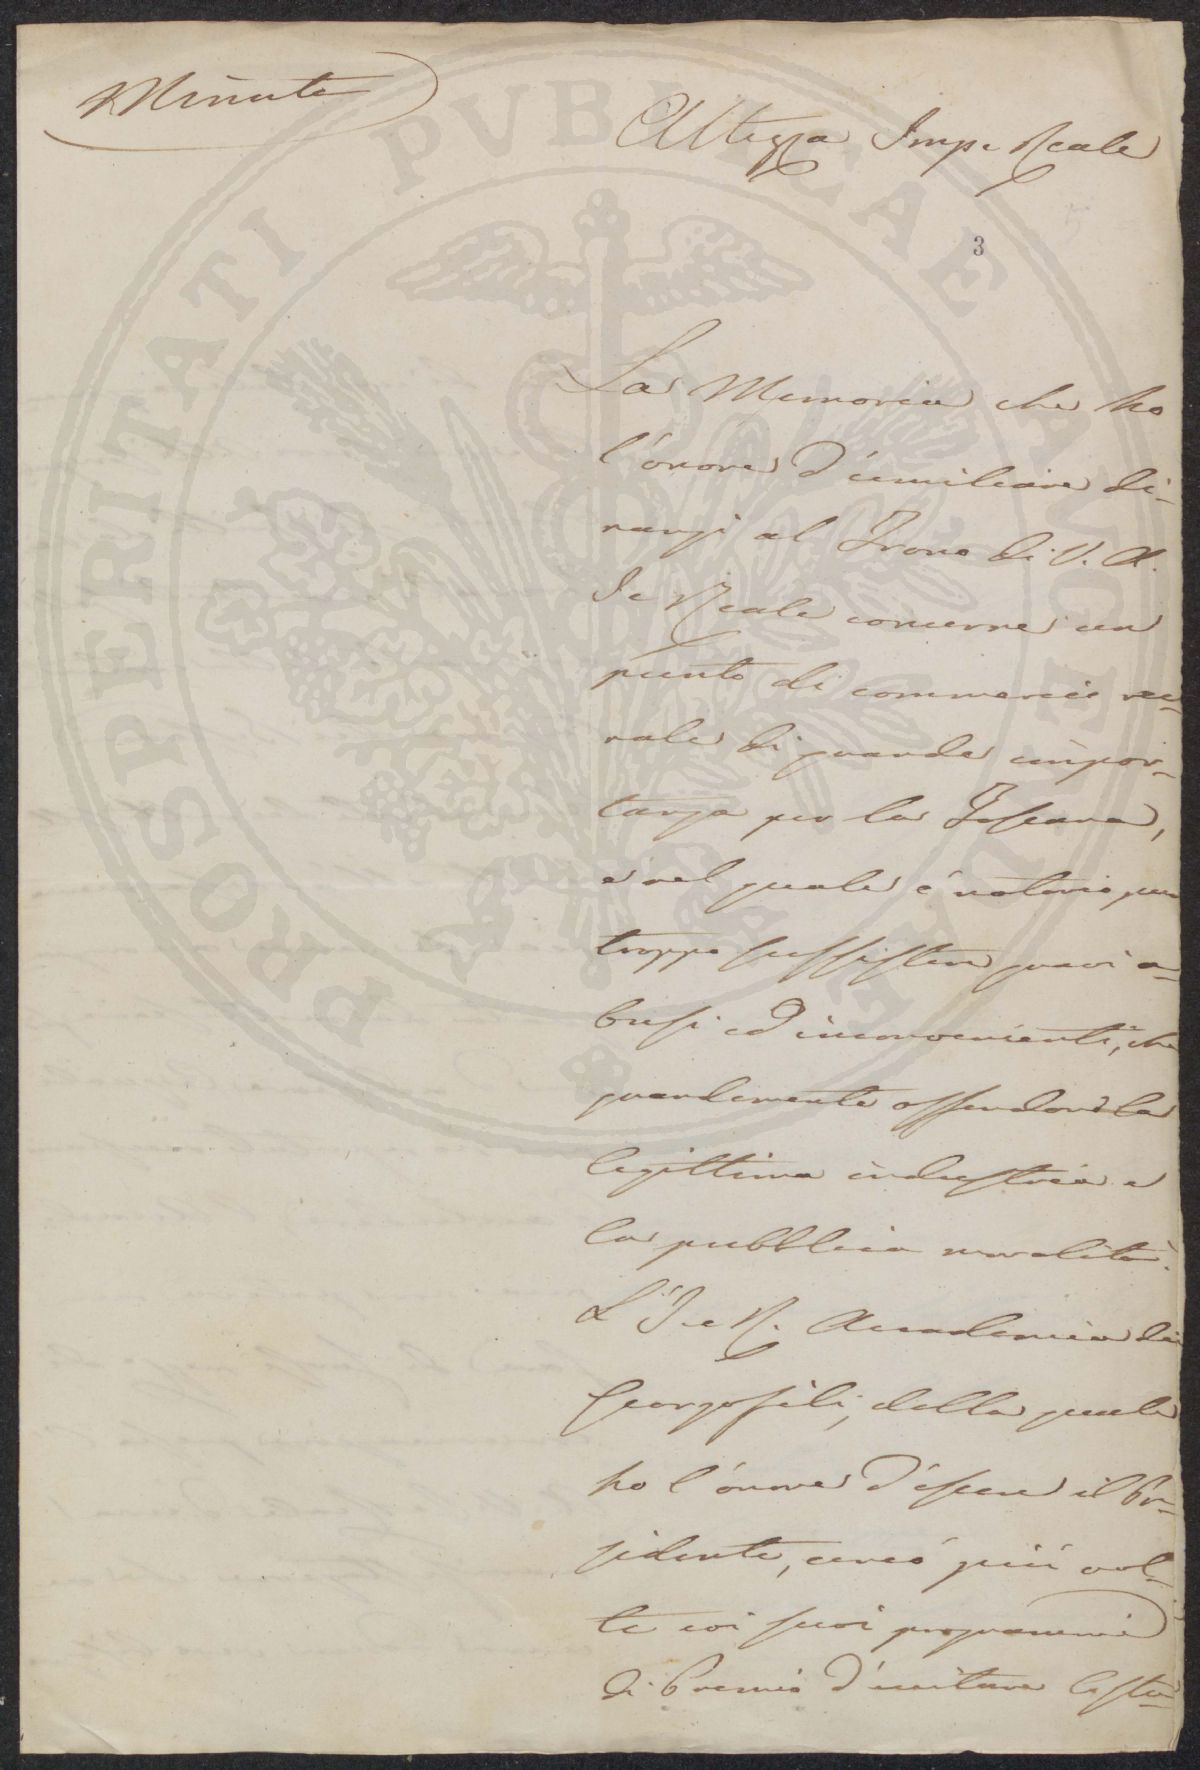 Minuta
Altezza Imp. e Reale
3
La Memoria che ho
l'onore d'umiliare di-
nanzi al Trono di V. A.
I. e Reale concerne un
punto di commercio ru-
rale di grande impor-
tanza per la Toscana,
e nel quale è notorio, pur
troppo sussistere gravi a-
busi ed inconvenienti, che
grandemente offendono la
legittima industria e
la pubblica moralità.
L'I. e R. Accademia dei
Georgofili, della quale
ho l'onore d'essere il Pre-
sidente, cercò più vol-
te coi suoi programmi
di Premio d'invitare lo stu-
PROSPERITATI PVBLICAE AVGENDAE